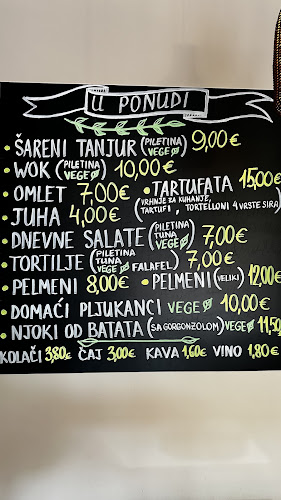 U PONUDI
• ŠARENI TANJUR (PILETINA VEGE) 9,00€
• WOK (PILETINA VEGE) 10,00€
• OMLET 7,00€ • TARTUFATA 15,00€
• JUHA 4,00€ (VRHNJE ZA KUHANJE, TARTUFI, TORTELLONI 4 VRSTE SIRA)
• DNEVNE SALATE (PILETINA TUNA VEGE) 7,00€
• TORTILJE (PILETINA TUNA VEGE FALAFEL) 7,00€
• PELMENI 8,00€ • PELMENI (VELIKI) 12,00€
• DOMAĆI PLJUKANCI VEGE 10,00€
• NJOKI OD BATATA (SA GORGONZOLOM) VEGE 11,50
KOLAČI 3,80€ ČAJ 3,00€ KAVA 1,60€ VINO 1,80€